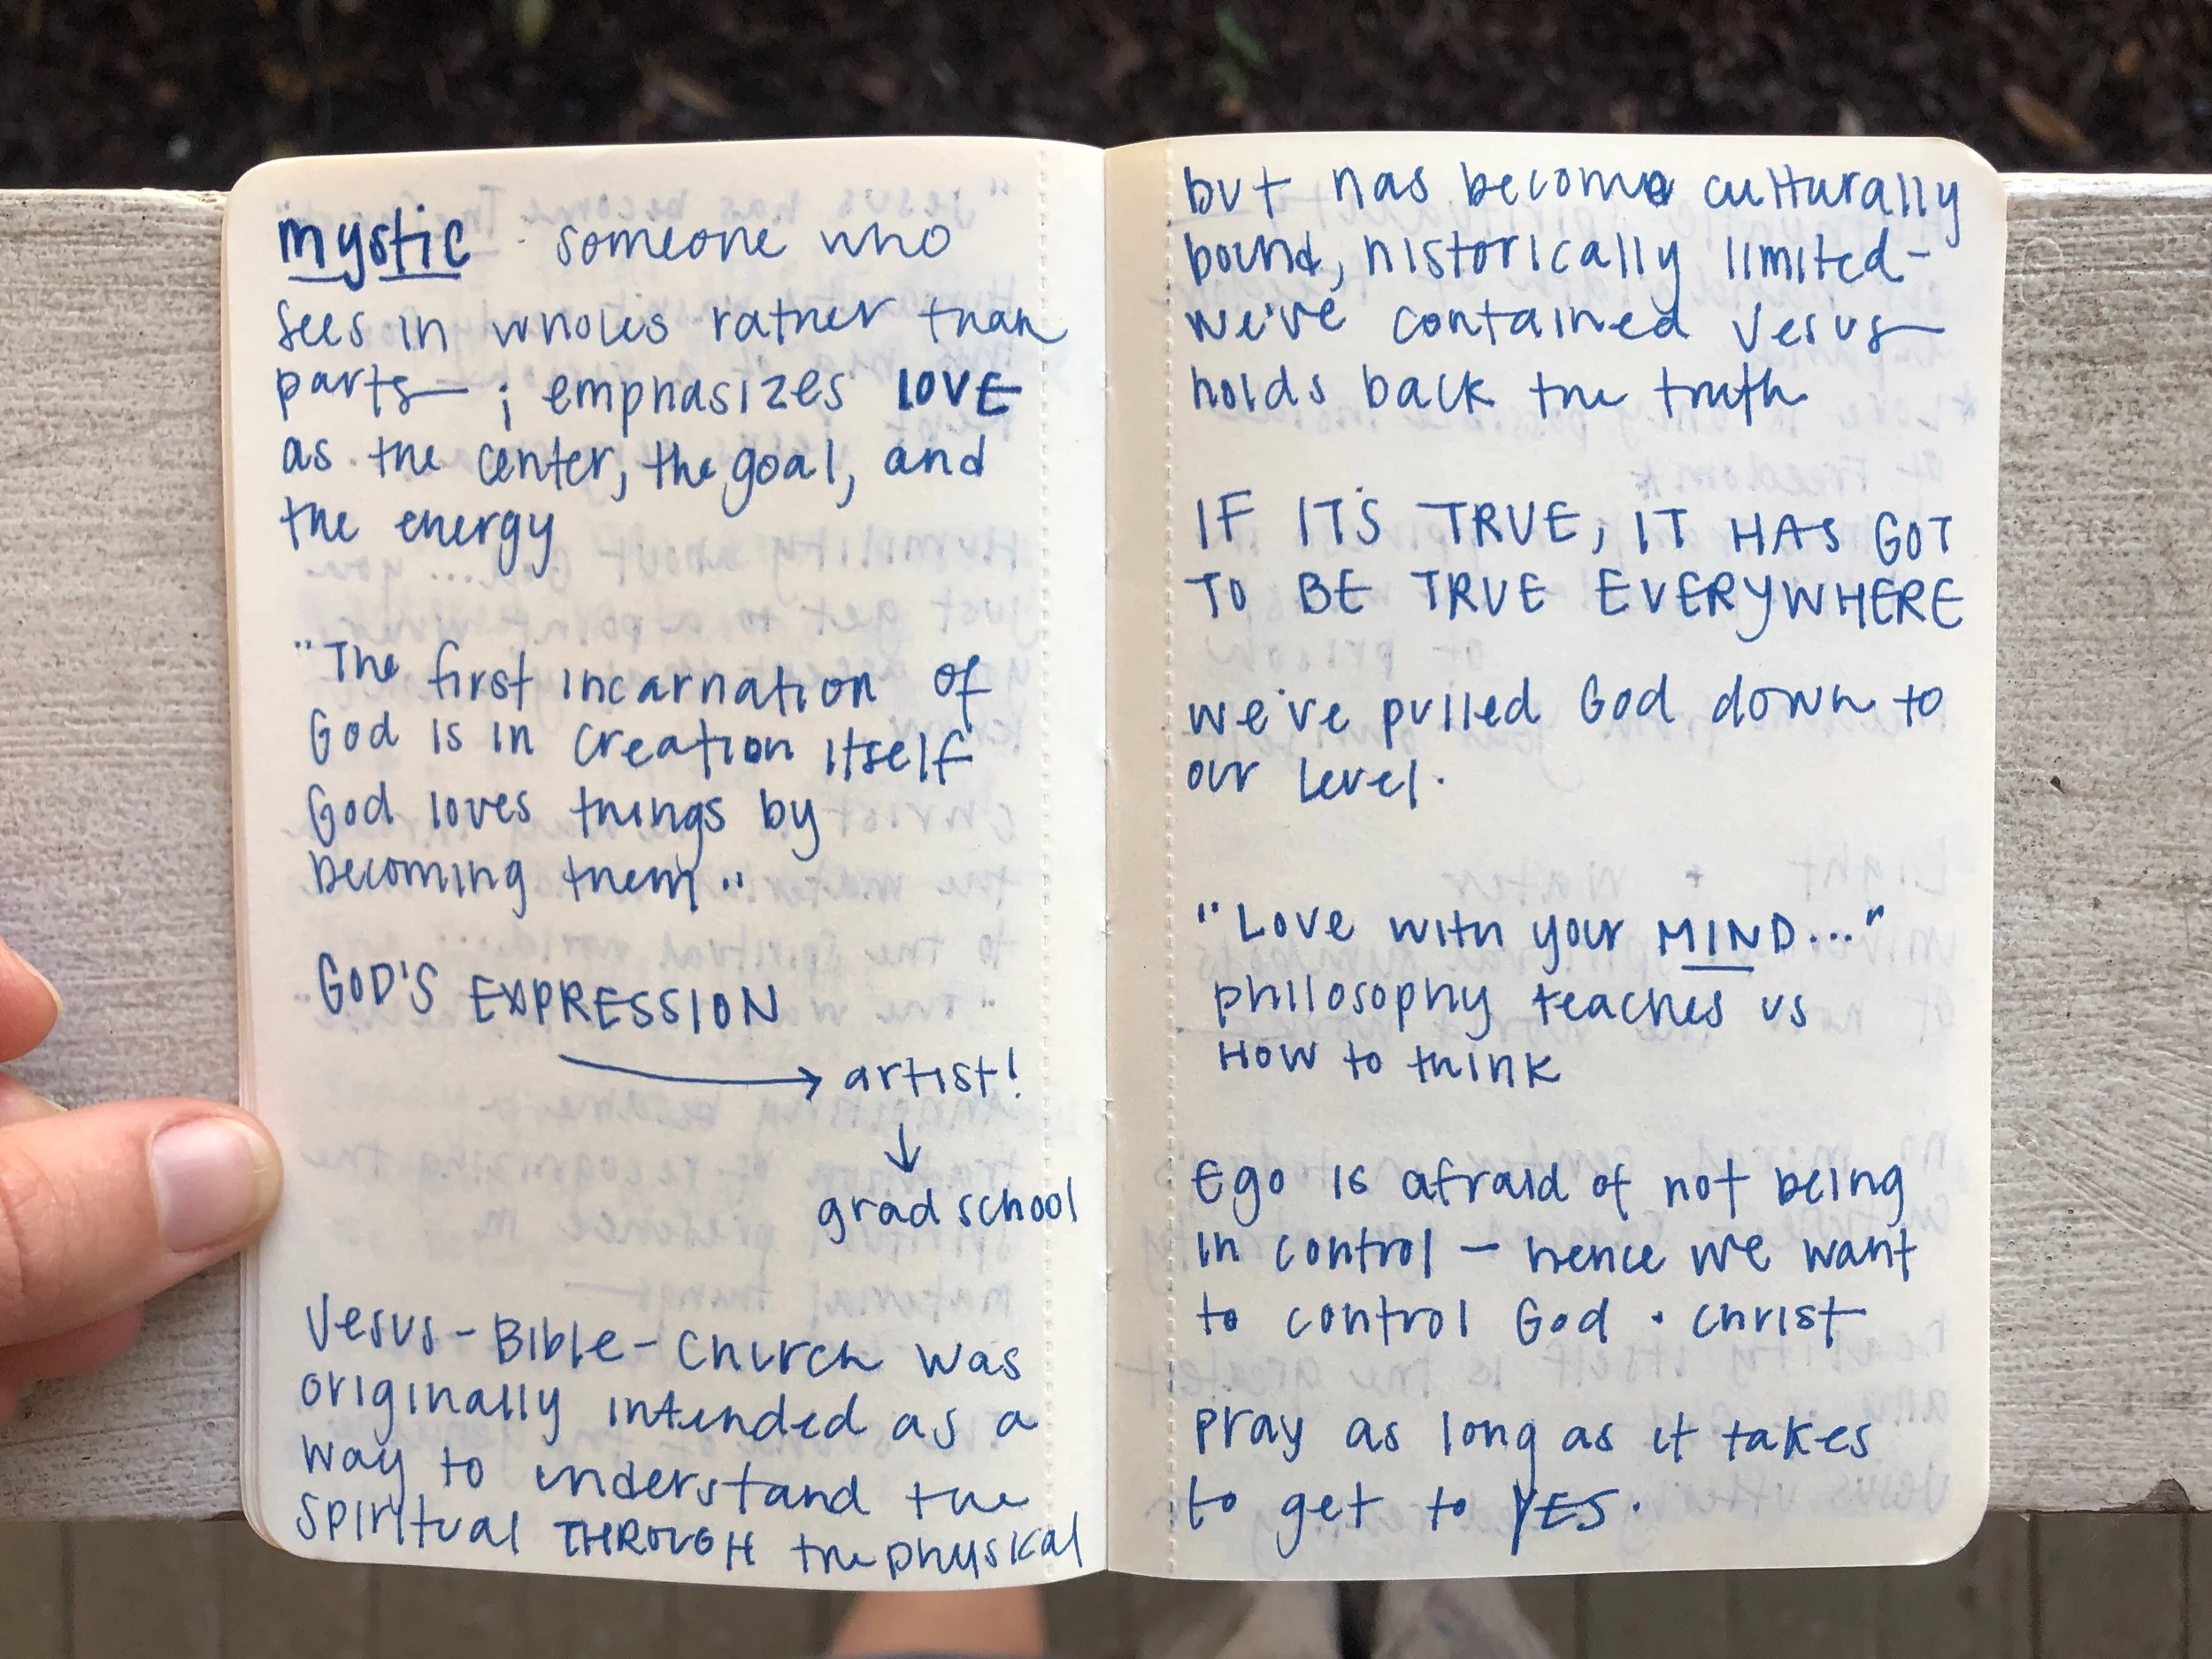 mystic · someone who
sees in wholes rather than
parts— ; emphasizes LOVE
as the center, the goal, and
the energy
"The first incarnation of
God is in creation itself
God loves things by
becoming them"
GOD'S EXPRESSION
→ artist!
↓
grad school
Jesus - Bible - Church was
originally intended as a
way to understand the
spiritual THROUGH the physical
but has become culturally
bound, historically limited -
we've contained Jesus—
holds back the truth
IF IT'S TRUE, IT HAS GOT
TO BE TRUE EVERYWHERE
we've pulled God down to
our level.
"Love with your MIND..."
philosophy teaches us
HOW to think
Ego is afraid of not being
in control — hence we want
to control God · Christ
pray as long as it takes
to get to YES.